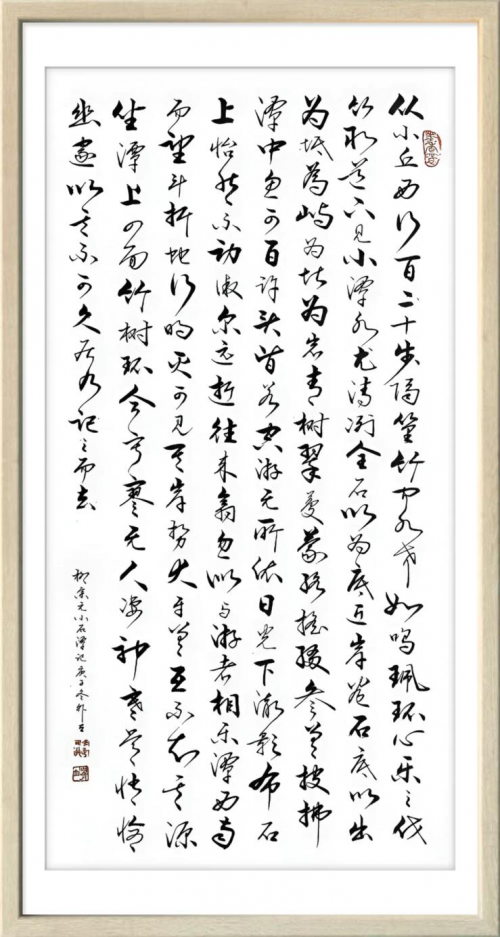 从小丘西行百二十步隔篁竹闻水声如鸣珮环心乐之伐
竹取道下见小潭水尤清冽全石以为底近岸卷石底以出
为坻为屿为嵁为岩青树翠蔓蒙络摇缀参差披拂
潭中鱼可百许头皆若空游无所依日光下澈影布石
上怡然不动俶尔远逝往来翕忽似与游者相乐潭西南
而望斗折蛇行明灭可见其岸势犬牙差互不知其源
坐潭上四面竹树环合寂寥无人凄神寒骨悄怆
幽邃以其不可久居乃记之而去
柳宗元小石潭记庚子冬